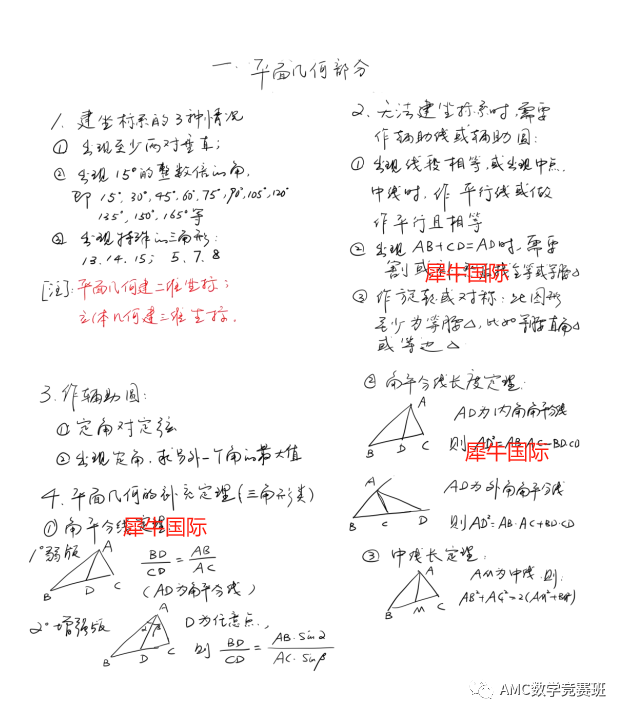 一. 平面几何部分
1. 建坐标系的3种情况
① 出现至少两对垂直;
② 出现15°的整数倍的角,
即 15°, 30°, 45°, 60°, 75°, 90°, 105°, 120°
135°, 150°, 165° 等
③ 出现特殊的三角形:
13. 14. 15; 5. 7. 8
[注]: 平面几何建二维坐标;
立体几何建三维坐标.
3. 作辅助圆:
① 定角对定弦
② 出现定角, 求另外一个角的最大值
4. 平面几何的补充定理(三角形类)
① 角平分线定理
犀牛国际
1° 弱版
A
B
D
C
BD/CD = AB/AC
(AD为角平分线)
2° 增强版
A
α β
B
D
C
D为任意点,
则 BD/CD = AB·Sinα/AC·Sinβ
2. 无法建坐标系时, 需要
作辅助线或辅助圆:
① 出现线段相等, 或出现中点.
中线时, 作 平行线或做
作平行且相等
② 出现 AB+CD=AD时, 需要
割或 全等或等腰△
犀牛国际
③ 作旋转或对称: 此图形
至少为等腰△, 比如等腰直角△
或等边△
② 角平分线长度定理:
A
B
D
C
AD为内角角平分线
则 AD²=AB·AC-BD·CD
犀牛国际
A
B
C
D
AD为外角角平分线
则AD²=AB·AC+BD·CD
③ 中线长定理:
A
B
M
C
AM为中线, 则:
AB²+AC²=2(AM²+BM²)
AMC数学竞赛班